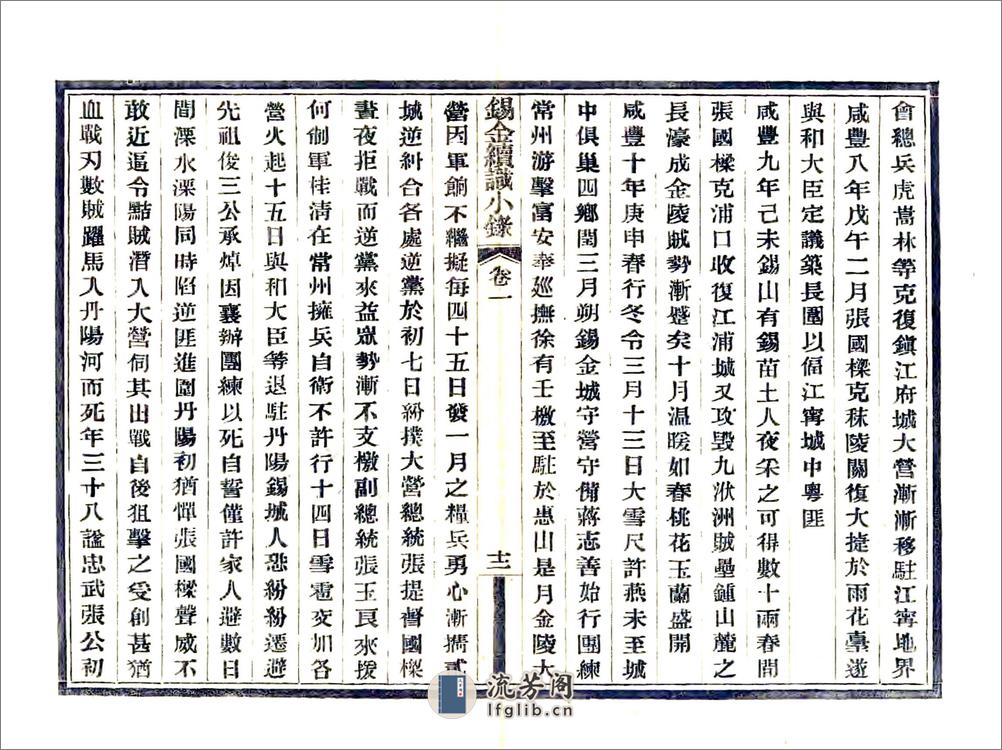 會總兵虎嵩林等克復鎭江府城大營漸漸移駐江寗地界
咸豐八年戊午二月張國樑克秣陵關復大捷於雨花臺遂
與和大臣定議築長圍以偪江寗城中粤匪
咸豐九年己未錫山有錫苗土人夜采之可得數十兩春間
張國樑克浦口收復江浦城又攻毀九洑洲賊壘鍾山麓之
長濠成金陵賊勢漸蹙矣十月温暖如春桃花玉蘭盛開
咸豐十年庚申春行冬令三月十三日大雪尺許燕未至城
中俱巢四鄉閏三月朔錫金城守營守備蔣志善始行團練
常州游擊富安奉廵撫徐有壬檄至駐於惠山是月金陵大
錫金續識小錄
卷一
十二
營因軍餉不繼擬每四十五日發一月之糧兵勇心漸攜貳
城逆糾合各處逆黨於初七日紛撲大營總統張提督國樑
晝夜拒戰而逆黨來益眾勢漸不支檄副總統張玉良來援
何制軍桂淸在常州擁兵自衛不許行十四日雪雹交加各
營火起十五日與和大臣等退駐丹陽錫城人恐紛紛遷避
先祖俊三公承焯因襄辦團練以死自誓僅許家人避數日
間溧水溧陽同時陷逆匪進圍丹陽初猶憚張國樑聲威不
敢近逼令黠賊潛入大營伺其出戰自後狙擊之受創甚猶
血戰刃數賊躍馬入丹陽河而死年三十八諡忠武張公初
流芳阁
lfglib.cn